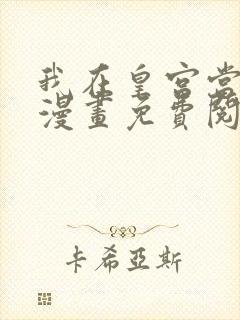 我在皇宫当
漫畫免費閱
卡希亞斯